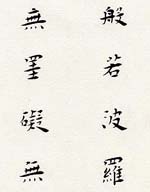 般若波羅
無罣礙無